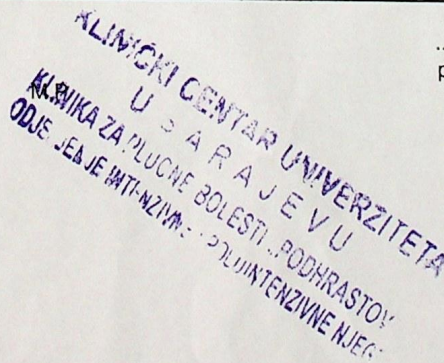 KLINIČKI CENTAR UNIVERZITETA
U SARAJEVU
M.P.
KLINIKA ZA PLUĆNE BOLESTI „PODHRASTOVI
ODJELJENJE INTENZIVNE I POLUINTENZIVNE NJEGE